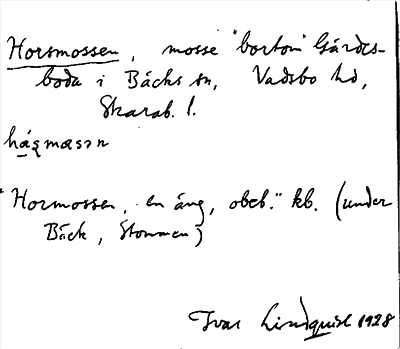 Horsmossen, mosse "bortom" Gårdes-
boda i Bäcks sn, Vadsbo hd,
Skarab. l.
hásmɷsən
"Hormossen, en äng, obeb." kb. (under
Bäck, Stommen)
Ivar Lindquist 1928